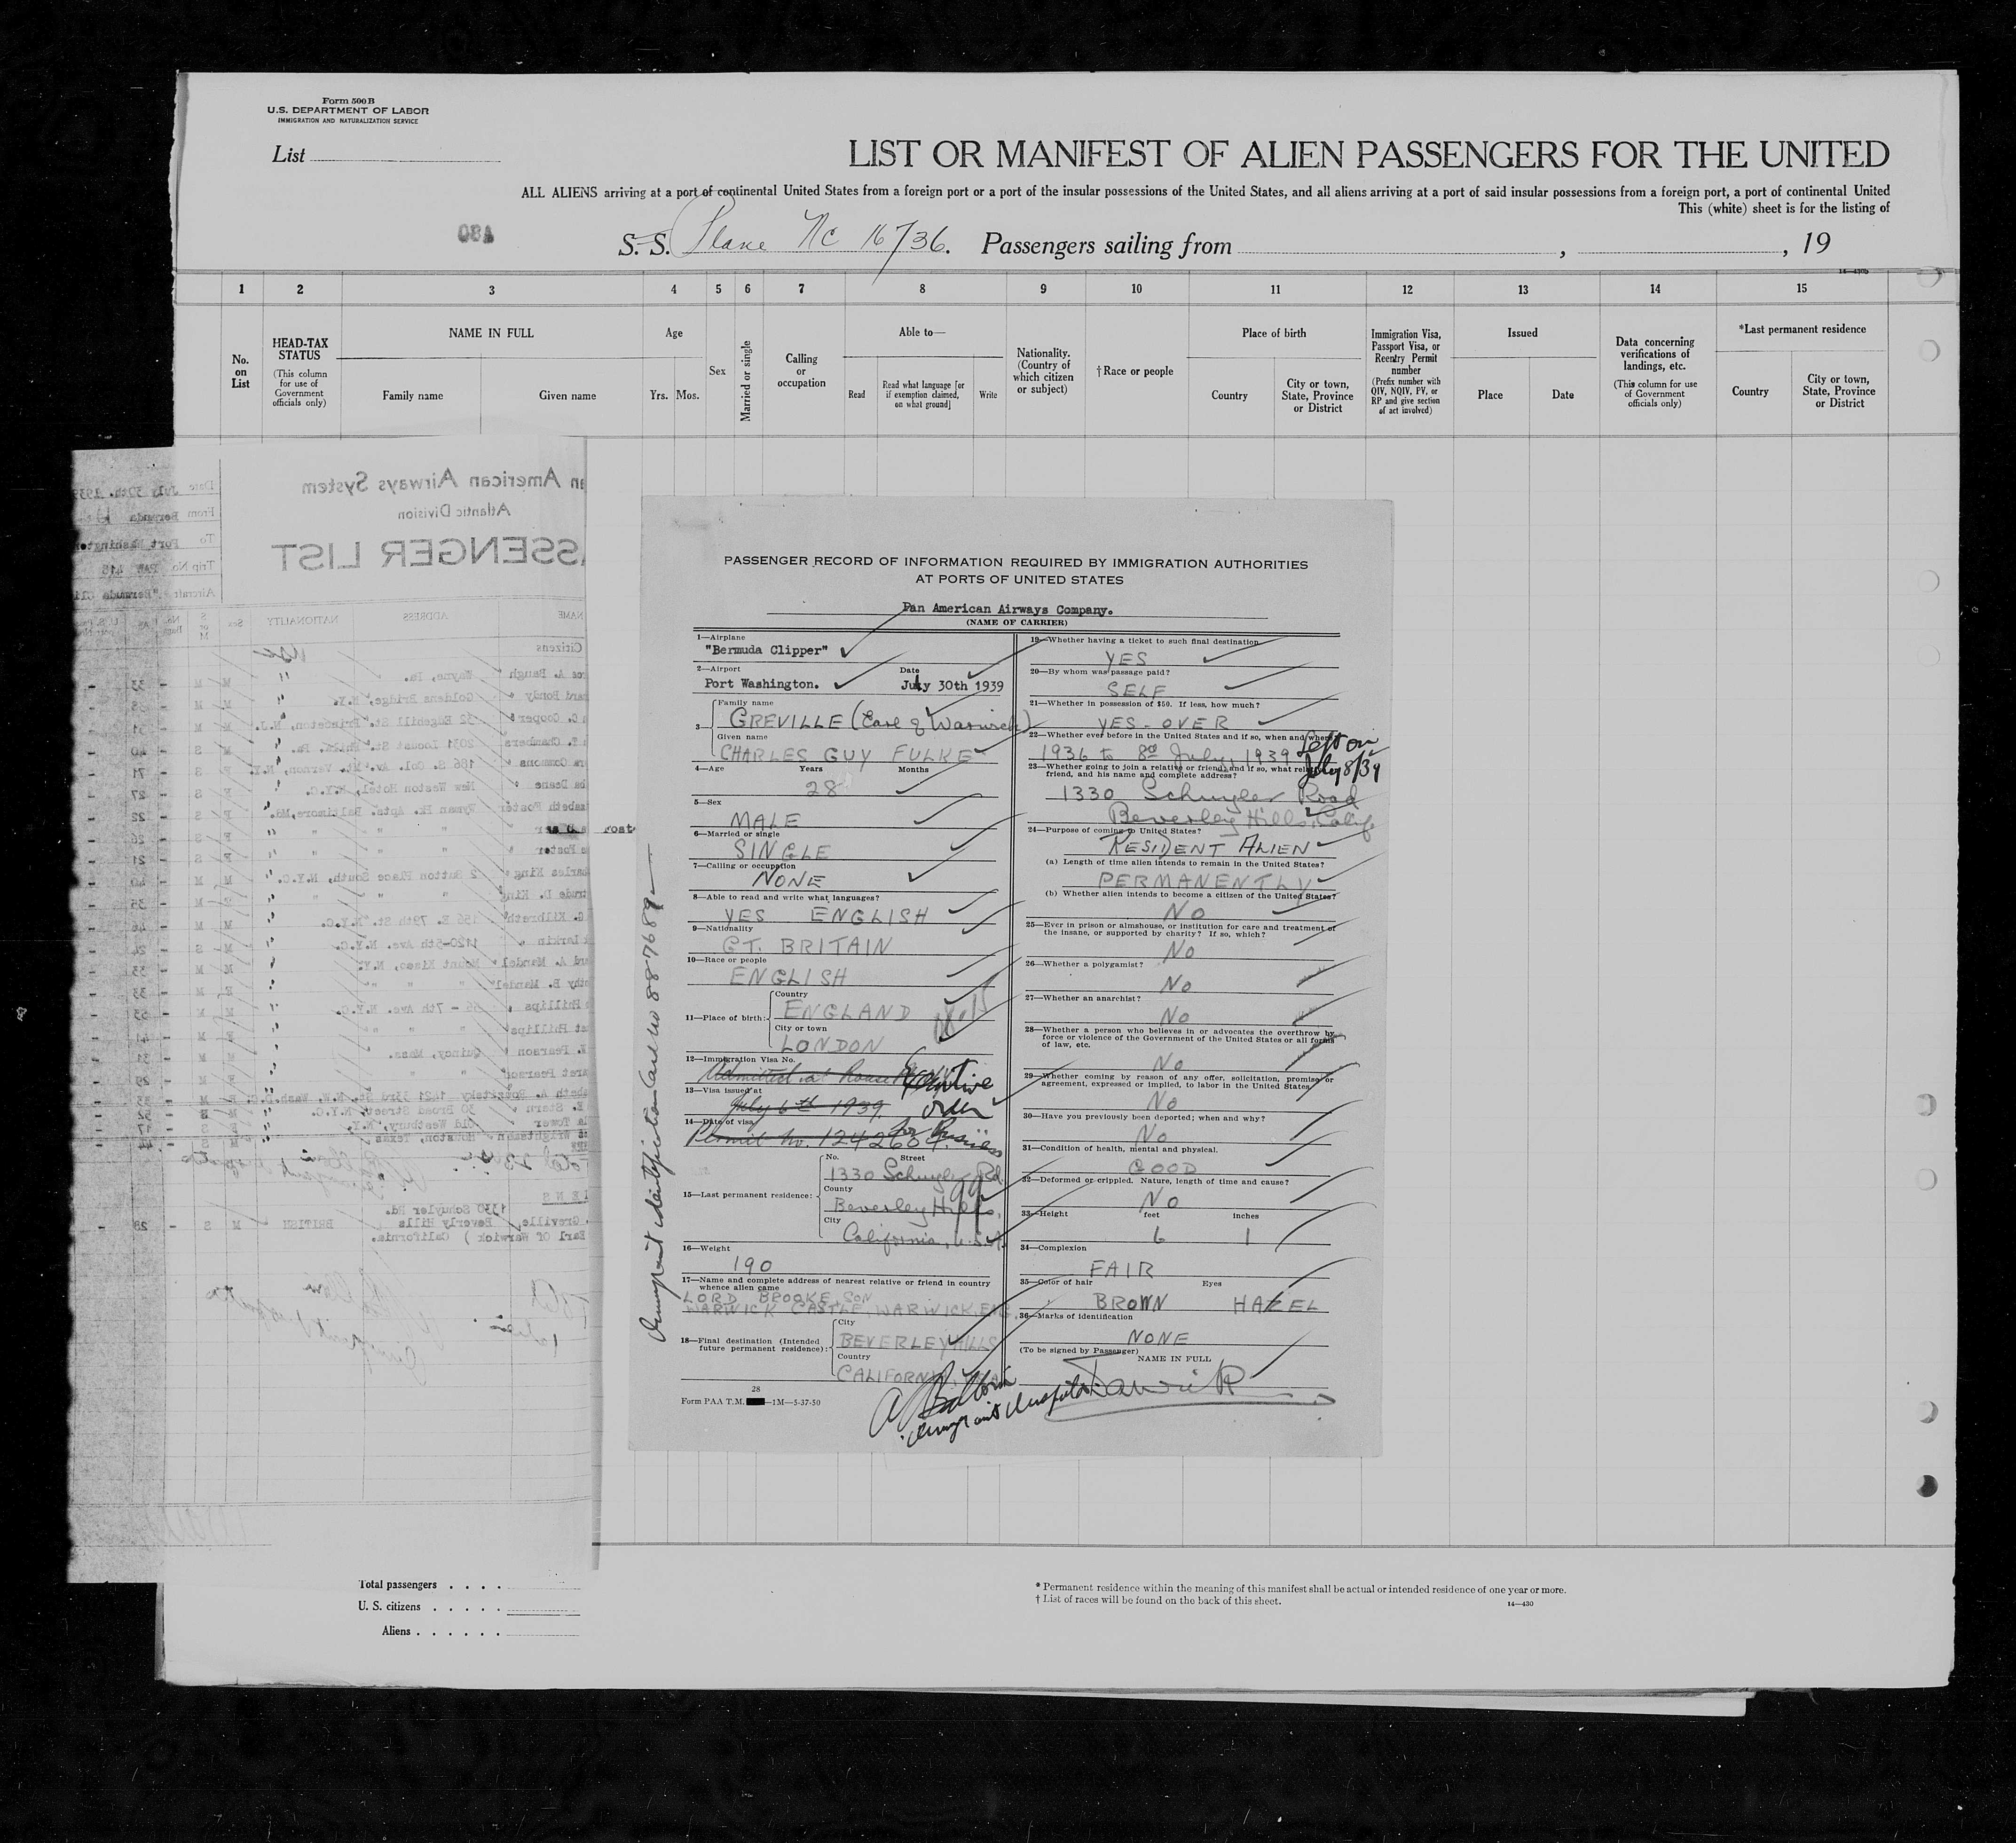 Form 500 B
U.S. DEPARTMENT OF LABOR
IMMIGRATION AND NATURALIZATION SERVICE
List
LIST OR MANIFEST OF ALIEN PASSENGERS FOR THE UNITED
ALL ALIENS arriving at a port of continental United States from a foreign port or a port of the insular possessions of the United States, and all aliens arriving at a port of said insular possessions from a foreign port, a port of continental United
This (white) sheet is for the listing of
S. S. Plane NC 16736. Passengers sailing from , , 19
14—430b
1 2 3 4 5 6 7 8 9 10 11 12 13 14 15
No. on List
HEAD-TAX STATUS
(This column for use of Government officials only)
NAME IN FULL
Family name Given name
Age
Yrs. Mos.
Sex
Married or single
Calling or occupation
Able to—
Read
Read what language [or if exemption claimed, on what ground]
Write
Nationality. (Country of which citizen or subject)
†Race or people
Place of birth
Country
City or town, State, Province or District
Immigration Visa, Passport Visa, or Reentry Permit number
(Prefix number with QIV, NQIV, PV, or RP and give section of act involved)
Issued
Place Date
Data concerning verifications of landings, etc.
(This column for use of Government officials only)
*Last permanent residence
Country
City or town, State, Province or District
an American Airways System
Atlantic Division
SSENGER LIST
Date July 30th. 1939
From Bermuda
To Port Washington
Trip No. PAW 416
Aircraft "Bermuda Cli
NAME ADDRESS NATIONALITY Sex S or M
Citizens USC
A. Baugh Wayne, Pa. M M 33
Bondy Goldens Bridge, N.Y. M M 38
C. Cooper 32 Edgehill St. Princeton, N.J. M M 31
T. Chambers 2031 Locust St. Phila, Pa. M S 40
Commons 186 S. Col. Av. Mt. Vernon, N.Y. F S 71
Deane New Weston Hotel, N.Y.C. F S 27
Foster Wyman Pk. Apts. Baltimore, Md. F S 22
" " " F S 26
Foster " " " F S 21
King 2 Sutton Place South, N.Y.C. M M 40
D. King " " " F M 35
G. Kilbreth 156 E. 79th St. N.Y.C. M M 46
Larkin 1120-5th Ave. N.Y.C. M S 24
A. Mandel Mount Kisco, N.Y. M M 33
B. Mandel " " F M 33
Phillips 56 - 7th Ave. N.Y.C. M M 53
Phillips " " F M 41
Pearson Quincy, Mass. M M 31
Pearson " " F M 29
E. Stern 30 Broad Street, N.Y.C. 52
Tower Old Westbury, N.Y. F S 17
Wrightsman Houston, Texas M 44
Greville, 1330 Schuyler Rd.
Beverly Hills BRITISH M S 28
Earl Of Warwick ) California.
PASSENGER RECORD OF INFORMATION REQUIRED BY IMMIGRATION AUTHORITIES
AT PORTS OF UNITED STATES
Pan American Airways Company.
(NAME OF CARRIER)
1—Airplane
"Bermuda Clipper"
2—Airport Date
Port Washington. July 30th 1939
3— Family name
GREVILLE (Earl of Warwick)
Given name
CHARLES GUY FULKE
4—Age Years Months
28
5—Sex
MALE
6—Married or single
SINGLE
7—Calling or occupation
NONE
8—Able to read and write what languages?
YES ENGLISH
9—Nationality
GT. BRITAIN
10—Race or people
ENGLISH
11—Place of birth: Country
ENGLAND
City or town
LONDON
12—Immigration Visa No.
Admitted at Executive
13—Visa issued at
July 6th 1939. order
14—Date of visa
Permit No. 1242604.
15—Last permanent residence: No. Street
1330 Schuyler Rd.
County
Beverley Hills,
City
California, U.S.A.
16—Weight
190
17—Name and complete address of nearest relative or friend in country whence alien came
LORD BROOKE, SON
WARWICK CASTLE, WARWICK, ENG.
18—Final destination (Intended future permanent residence): City
BEVERLEY HILLS
Country
CALIFORNIA
28
Form PAA T.M. —1M—5-37-50
19—Whether having a ticket to such final destination
YES
20—By whom was passage paid?
SELF
21—Whether in possession of $50. If less, how much?
YES - OVER
22—Whether ever before in the United States and if so, when and where?
1936 to 8th July, 1939 Left on July 8/39
23—Whether going to join a relative or friend, and if so, what relative or friend, and his name and complete address?
1330 Schuyler Road
Beverley Hills, Calif
24—Purpose of coming to United States?
RESIDENT ALIEN
(a) Length of time alien intends to remain in the United States?
PERMANENTLY
(b) Whether alien intends to become a citizen of the United States?
NO
25—Ever in prison or almshouse, or institution for care and treatment of the insane, or supported by charity? If so, which?
NO
26—Whether a polygamist?
NO
27—Whether an anarchist?
NO
28—Whether a person who believes in or advocates the overthrow by force or violence of the Government of the United States or all forms of law, etc.
NO
29—Whether coming by reason of any offer, solicitation, promise or agreement, expressed or implied, to labor in the United States
NO
30—Have you previously been deported; when and why?
NO
31—Condition of health, mental and physical.
GOOD
32—Deformed or crippled. Nature, length of time and cause?
NO
33—Height feet inches
6 1
34—Complexion
FAIR
35—Color of hair Eyes
BROWN HAZEL
36—Marks of identification
NONE
(To be signed by Passenger)
NAME IN FULL
Warwick
Immigrant Inspector
Immigrant identification Card no 887689
Total passengers . . . .
U. S. citizens . . . . .
Aliens . . . . . .
* Permanent residence within the meaning of this manifest shall be actual or intended residence of one year or more.
† List of races will be found on the back of this sheet.
14—430